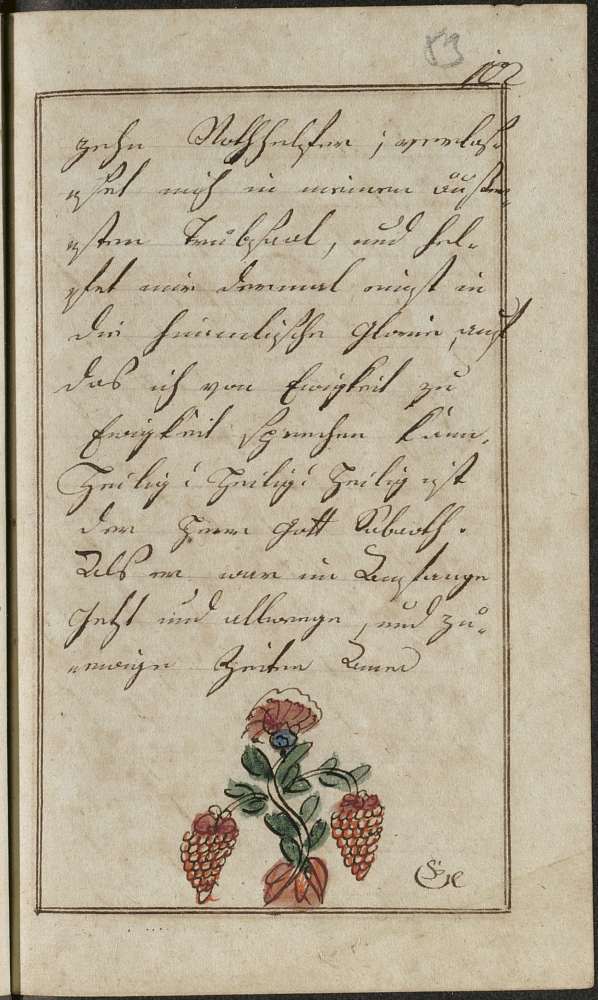 83
102
zehn Nothhelfer; verlas-
set mich in meinem äusser-
sten Trübsaal, und hel-
fet mir dermal einst in
die himmlische Glorie, auf
das ich von Ewigkeit zu
Ewigkeit sprechen kann,
Heilig! Heilig! Heilig ist
der Herr Gott Sabaoth.
Als er war im Anfange
Jetzt und allwege, und zu-
ewige Zeiten Amen